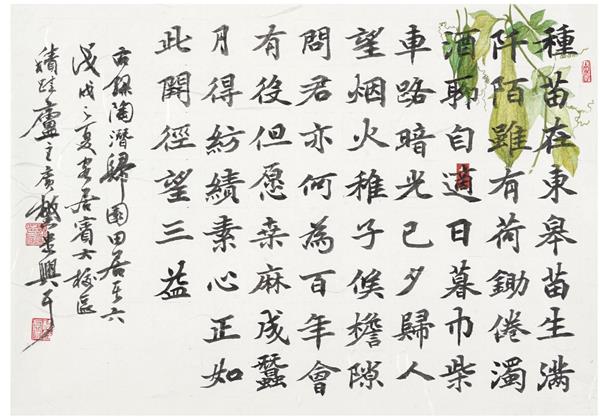 種苗在東皋苗生滿
阡陌雖有荷鋤倦濁
酒聊自適日暮巾柴
車路暗光已夕歸人
望烟火稚子候檐隙
問君亦何為百年會
有役但愿桑麻成蠶
月得紡績素心正如
此開徑望三益
右録陶潛歸園田居其六
戊戌之夏客居賓大校區
廬主廣